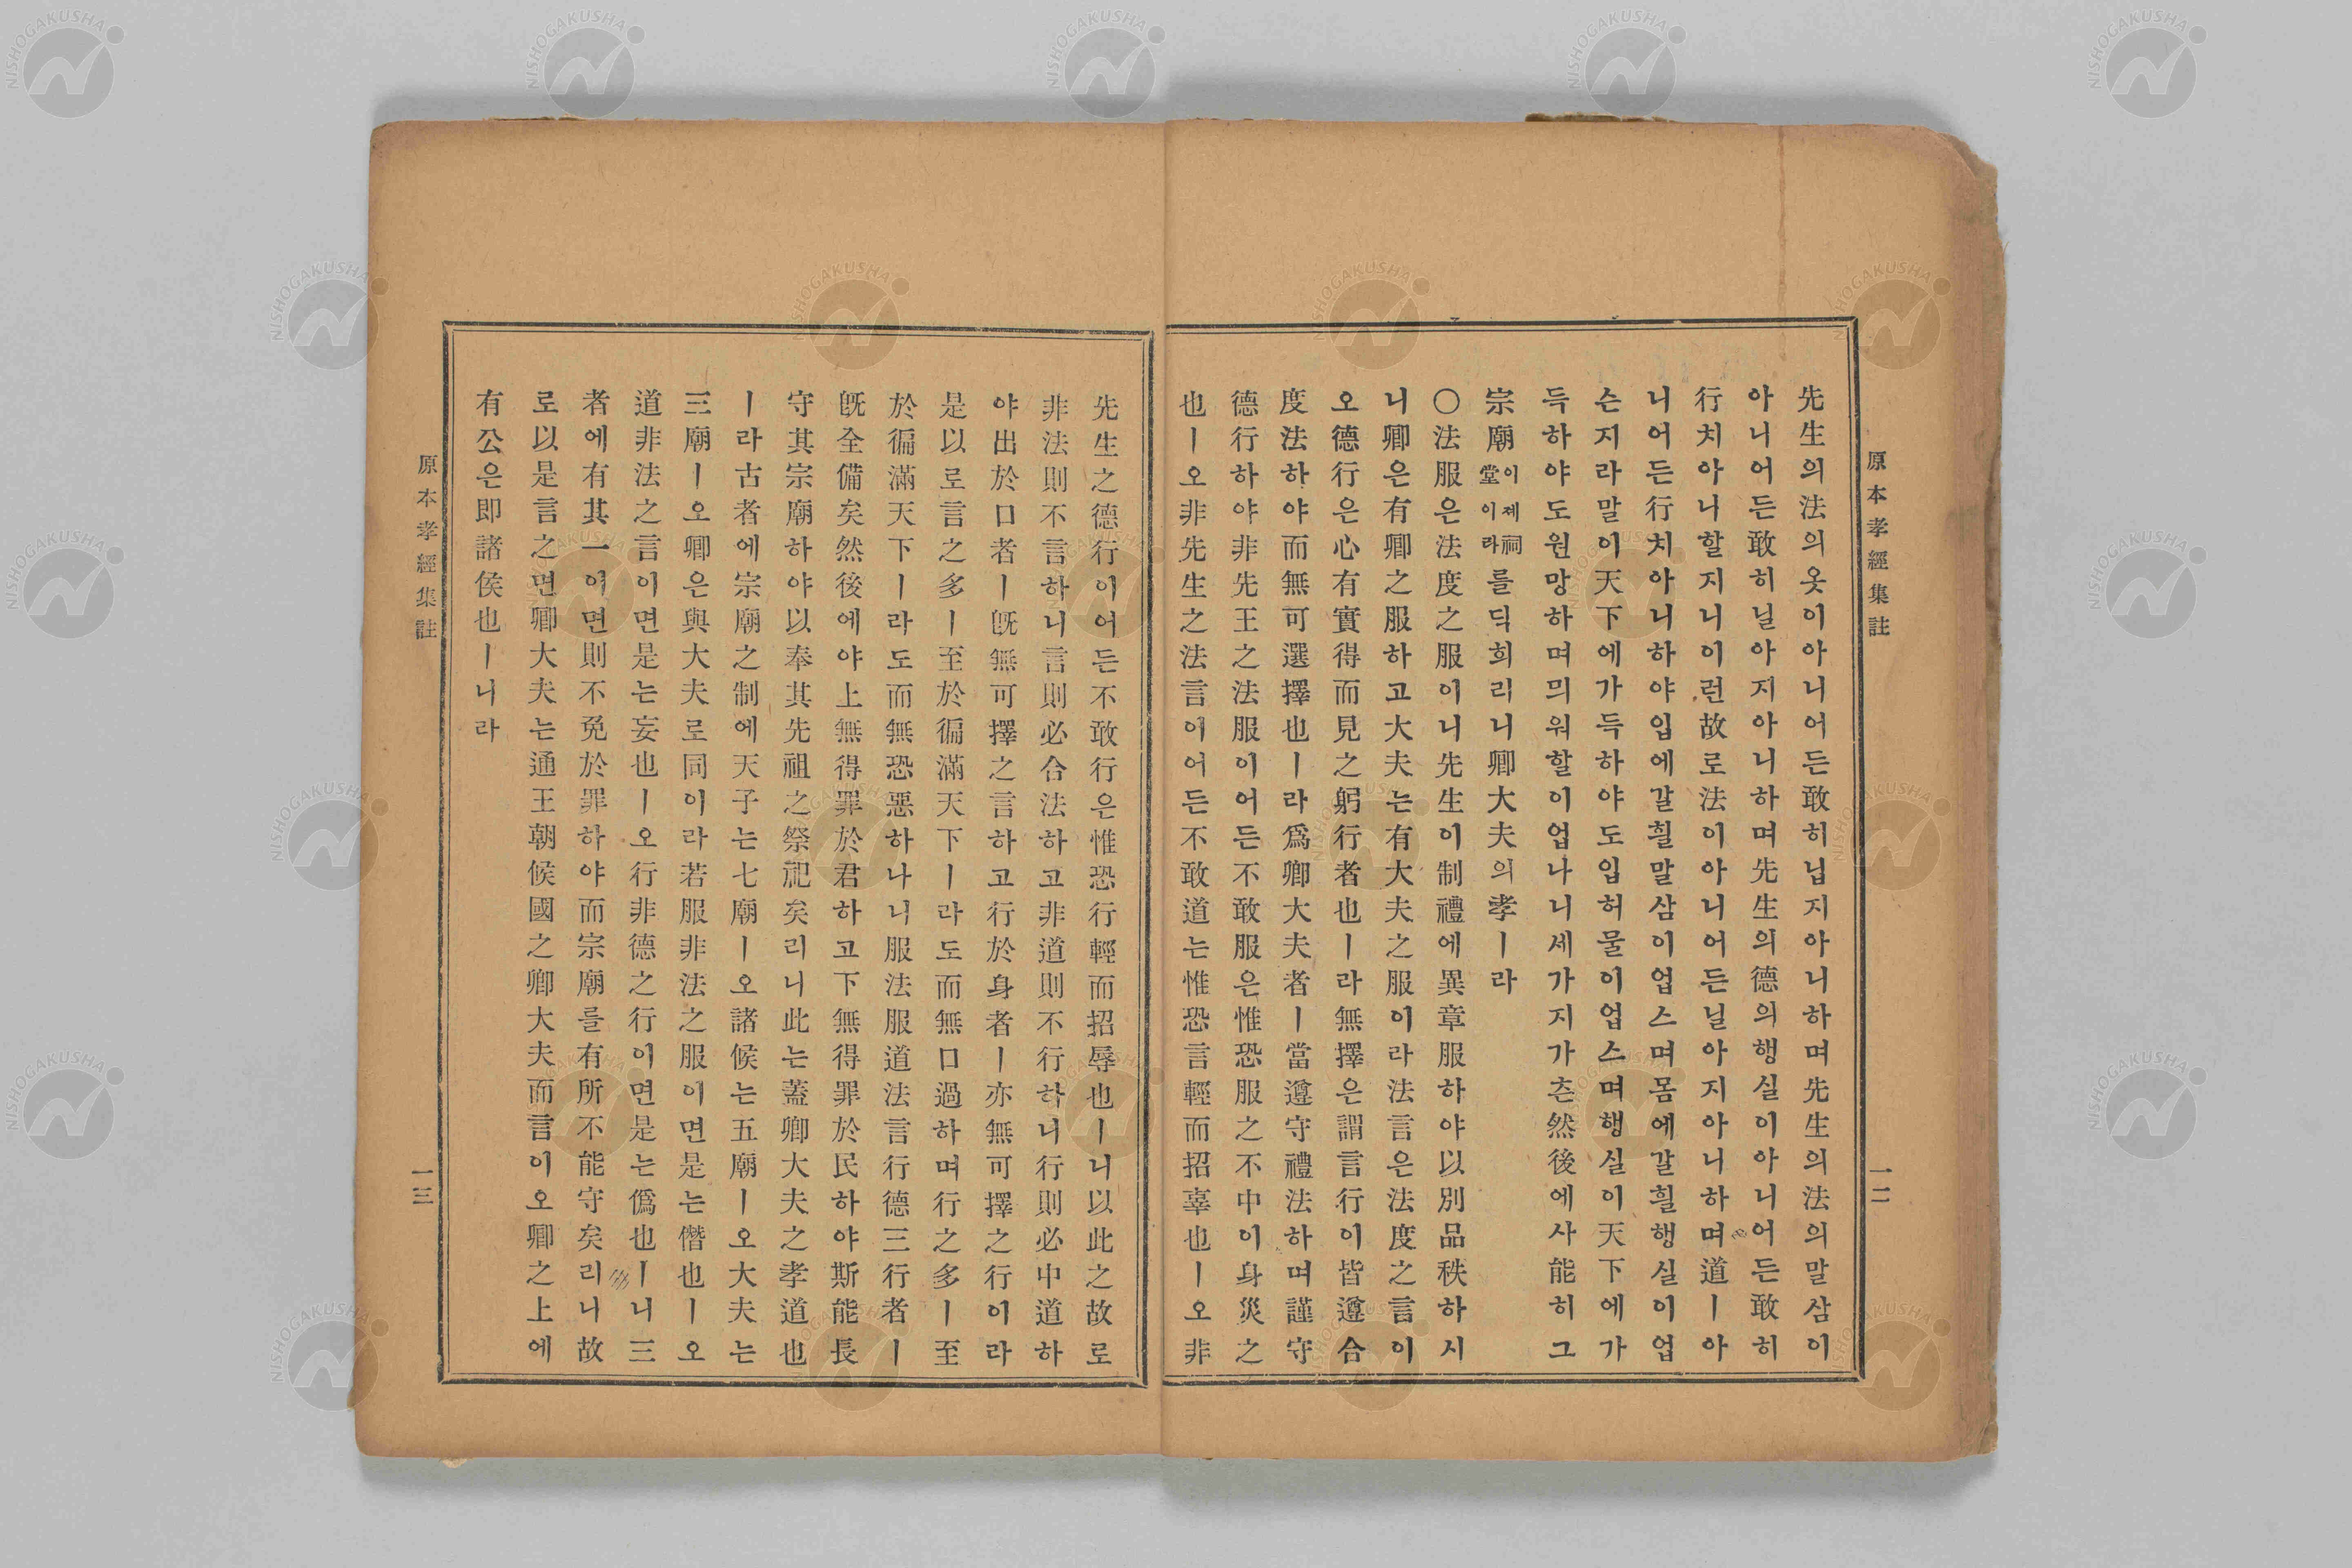 原本孝經集註
一二
先生의法의옷이아니어든敢히닙지아니하며先生의法의말삼이
아니어든敢히닐아지아니하며先生의德의행실이아니어든敢히
行치아니할지니이런故로法이아니어든닐아지아니하며道ㅣ아
니어든行치아니하야입에갈흴말삼이업스며몸에갈흴행실이업
슨지라말이天下에가득하야도입허물이업스며행실이天下에가
득하야도원망하며믜워할이업나니세가지가츤然後에사能히그
宗廟이졔祠堂이이라를딕희리니卿大夫의孝ㅣ라
〇法服은法度之服이니先生이制禮에異章服하야以別品秩하시
니卿은有卿之服하고大夫는有大夫之服이라法言은法度之言이
오德行은心有實得而見之躬行者也ㅣ라無擇은謂言行이皆遵合
度法하야而無可選擇也ㅣ라爲卿大夫者ㅣ當遵守禮法하며謹守
德行하야非先王之法服이어든不敢服은惟恐服之不中이身災之
也ㅣ오非先生之法言이어든不敢道는惟恐言輕而招辜也ㅣ오非
先生之德行이어든不敢行은惟恐行輕而招辱也ㅣ니以此之故로
非法則不言하니言則必合法하고非道則不行하니行則必中道하
야出於口者ㅣ旣無可擇之言하고行於身者ㅣ亦無可擇之行이라
是以로言之多ㅣ至於徧滿天下ㅣ라도而無口過하며行之多ㅣ至
於徧滿天下ㅣ라도而無恐惡하나니服法服道法言行德三行者ㅣ
旣全備矣然後에야上無得罪於君하고下無得罪於民하야斯能長
守其宗廟하야以奉其先祖之祭祀矣리니此는蓋卿大夫之孝道也
ㅣ라古者에宗廟之制에天子는七廟ㅣ오諸候는五廟ㅣ오大夫는
三廟ㅣ오卿은與大夫로同이라若服非法之服이면是는僭也ㅣ오
道非法之言이면是는妄也ㅣ오行非德之行이면是는僞也ㅣ니三
者에有其一이면則不免於罪하야而宗廟를有所不能守矣리니故
로以是言之면卿大夫는通王朝候國之卿大夫而言이오卿之上에
有公은即諸侯也ㅣ니라
原本孝經集註
一三